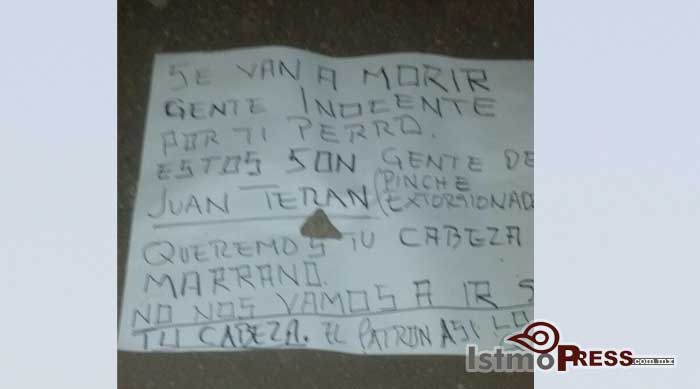 SE VAN A MORIR
GENTE INOCENTE
POR TI PERRO.
ESTOS SON GENTE DE
JUAN TERAN (PINCHE
EXTORSIONADO
QUEREMOS TU CABEZA
MARRANO.
NO NOS VAMOS A IR S
TU CABEZA. EL PATRON ASI LO
IstmoPRESS.com.mx